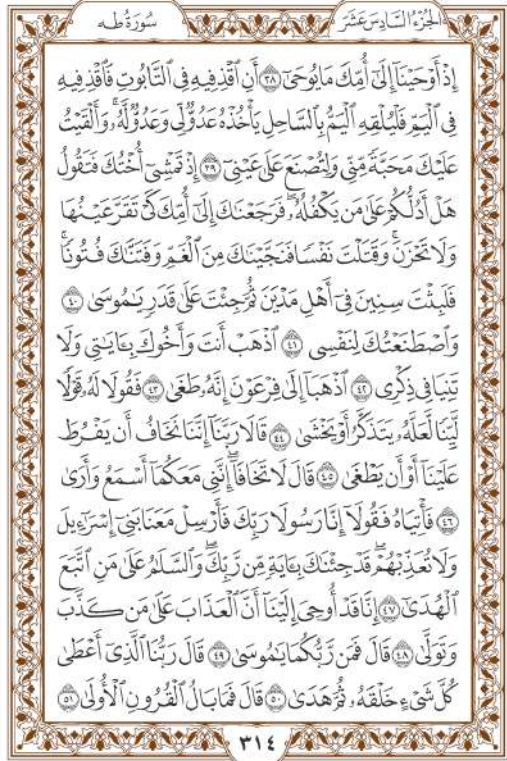 الجُزْءُ السَّادِسَ عَشَرَ
سُورَةُ طه
إِذْ أَوْحَيْنَآ إِلَىٰٓ أُمِّكَ مَا يُوحَىٰٓ ٣٨ أَنِ ٱقْذِفِيهِ فِى ٱلتَّابُوتِ فَٱقْذِفِيهِ
فِى ٱلْيَمِّ فَلْيُلْقِهِ ٱلْيَمُّ بِٱلسَّاحِلِ يَأْخُذْهُ عَدُوٌّ لِّى وَعَدُوٌّ لَّهُۥ ۚ وَأَلْقَيْتُ
عَلَيْكَ مَحَبَّةً مِّنِّى وَلِتُصْنَعَ عَلَىٰ عَيْنِىٓ ٣٩ إِذْ تَمْشِىٓ أُخْتُكَ فَتَقُولُ
هَلْ أَدُلُّكُمْ عَلَىٰ مَن يَكْفُلُهُۥ ۖ فَرَجَعْنَٰكَ إِلَىٰٓ أُمِّكَ كَىْ تَقَرَّ عَيْنُهَا
وَلَا تَحْزَنَ ۚ وَقَتَلْتَ نَفْسًا فَنَجَّيْنَٰكَ مِنَ ٱلْغَمِّ وَفَتَنَّٰكَ فُتُونًا ۚ
فَلَبِثْتَ سِنِينَ فِىٓ أَهْلِ مَدْيَنَ ثُمَّ جِئْتَ عَلَىٰ قَدَرٍ يَٰمُوسَىٰ ٤٠
وَٱصْطَنَعْتُكَ لِنَفْسِى ٤١ ٱذْهَبْ أَنتَ وَأَخُوكَ بِـَٔايَٰتِى وَلَا
تَنِيَا فِى ذِكْرِى ٤٢ ٱذْهَبَآ إِلَىٰ فِرْعَوْنَ إِنَّهُۥ طَغَىٰ ٤٣ فَقُولَا لَهُۥ قَوْلًا
لَّيِّنًا لَّعَلَّهُۥ يَتَذَكَّرُ أَوْ يَخْشَىٰ ٤٤ قَالَا رَبَّنَآ إِنَّنَا نَخَافُ أَن يَفْرُطَ
عَلَيْنَآ أَوْ أَن يَطْغَىٰ ٤٥ قَالَ لَا تَخَافَآ ۖ إِنَّنِى مَعَكُمَآ أَسْمَعُ وَأَرَىٰ
٤٦ فَأْتِيَاهُ فَقُولَآ إِنَّا رَسُولَا رَبِّكَ فَأَرْسِلْ مَعَنَا بَنِىٓ إِسْرَٰٓءِيلَ
وَلَا تُعَذِّبْهُمْ ۖ قَدْ جِئْنَٰكَ بِـَٔايَةٍ مِّن رَّبِّكَ ۖ وَٱلسَّلَٰمُ عَلَىٰ مَنِ ٱتَّبَعَ
ٱلْهُدَىٰٓ ٤٧ إِنَّا قَدْ أُوحِىَ إِلَيْنَآ أَنَّ ٱلْعَذَابَ عَلَىٰ مَن كَذَّبَ
وَتَوَلَّىٰ ٤٨ قَالَ فَمَن رَّبُّكُمَا يَٰمُوسَىٰ ٤٩ قَالَ رَبُّنَا ٱلَّذِىٓ أَعْطَىٰ
كُلَّ شَىْءٍ خَلْقَهُۥ ثُمَّ هَدَىٰ ٥٠ قَالَ فَمَا بَالُ ٱلْقُرُونِ ٱلْأُولَىٰ ٥١
٣١٤